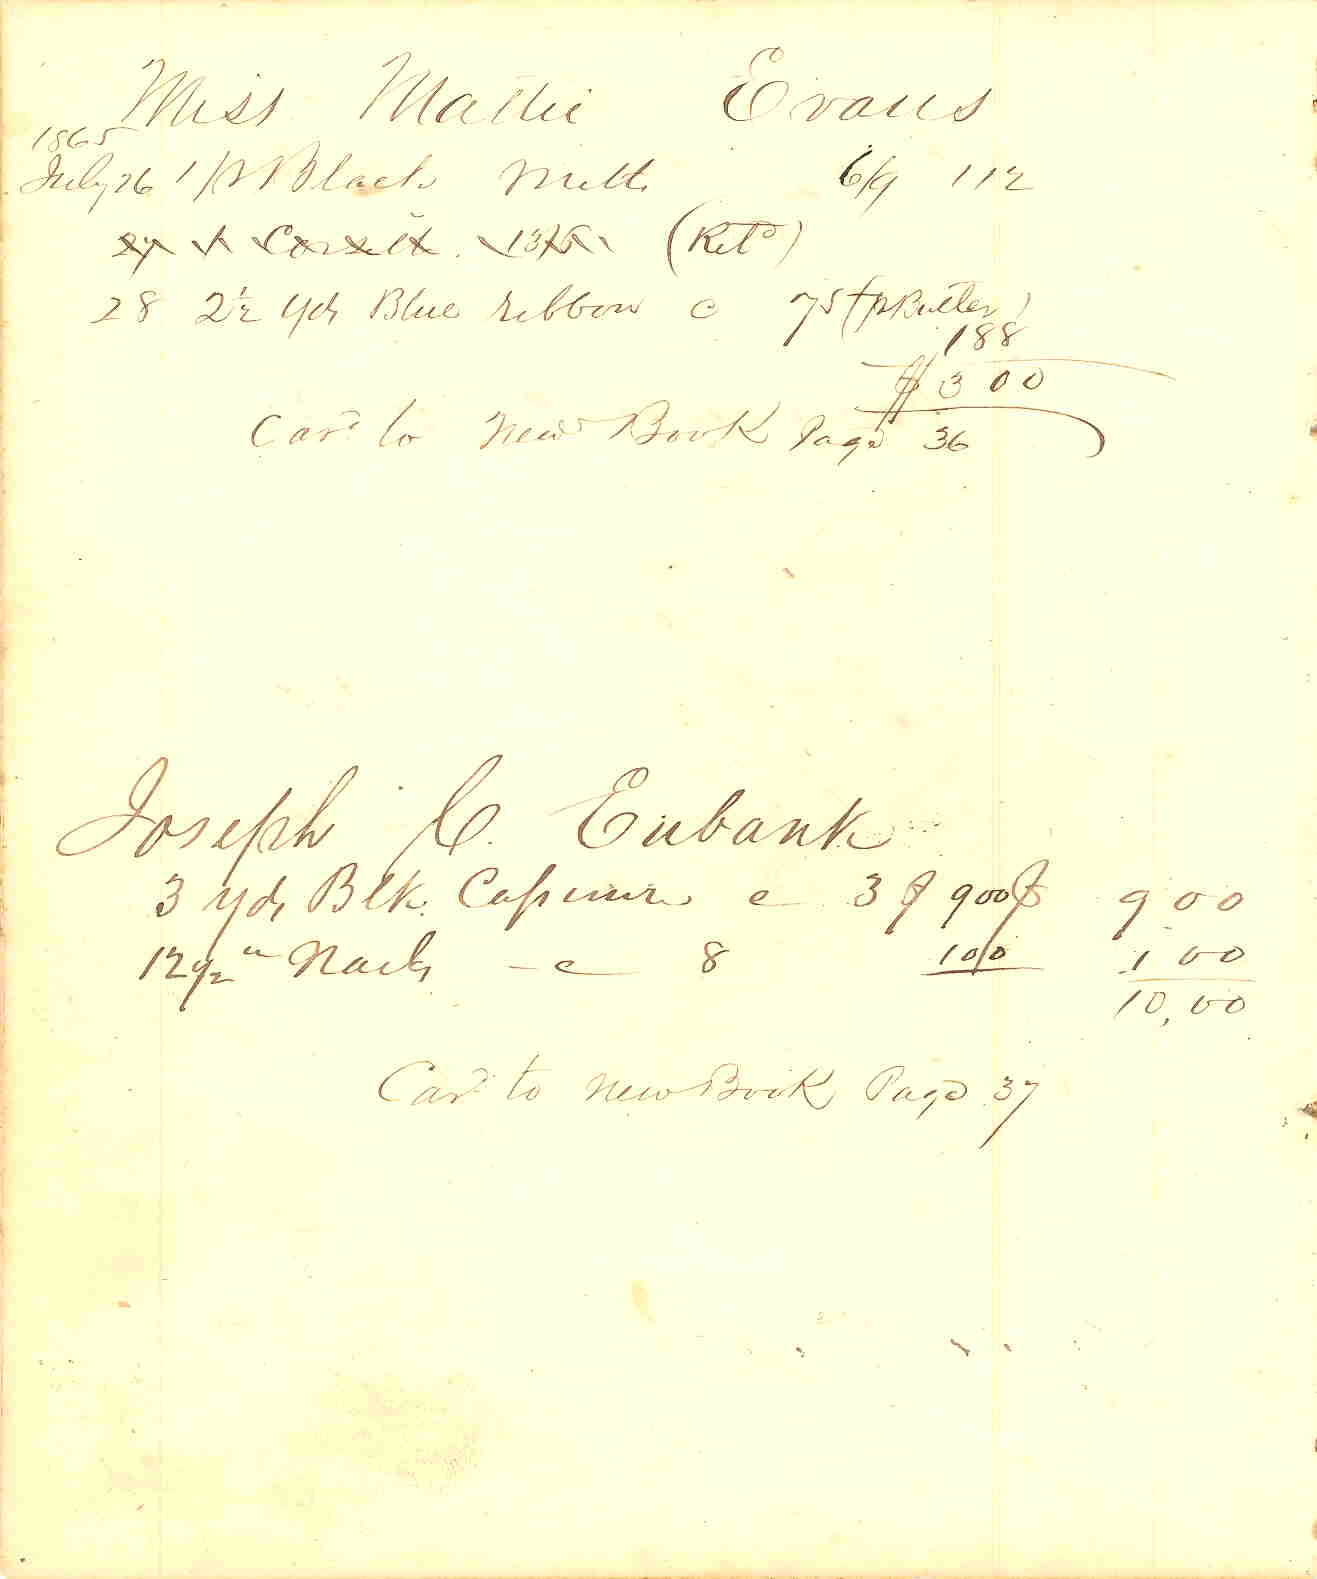 Miss Mattie Evans
1865
July 26 1 pr Black Mitts 6/9 112
27 1 Corsett 1375 (Retd)
28 2½ yds Blue ribbon c 75 (pr Butler) 188
$3 00
Card to New Book Page 36
Joseph C. Eubank
3 yds Blk. Cassimere c 3$ 900 9 00
12½ " Nails - c 8 100 1 00
10,00
Card to New Book Page 37